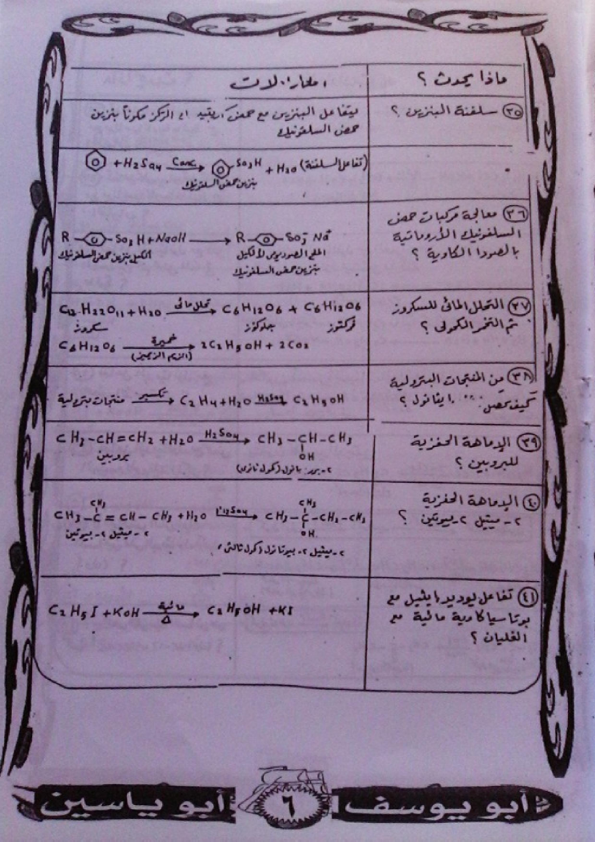 ماذا يحدث ؟
المعادلات
٣٥ سلفنة البنزين ؟
يتفاعل البنزين مع حمض الكبريتيك المركز مكوناً بنزين
حمض السلفونيك
+ H2SO4 Conc → SO3H + H2O (تفاعل السلفنة)
بنزين حمض السلفونيك
٣٦ معالجة مركبات حمض
السلفونيك الأروماتية
بالصودا الكاوية ؟
R SO3H + NaOH → R SO3- Na+
ألكيل بنزين حمض السلفونيك
الملح الصوديومى لألكيل
بنزين حمض السلفونيك
٣٧ التحلل المائى للسكروز
ثم التخمر الكحولى ؟
C12H22O11 + H2O تحلل مائى → C6H12O6 + C6H12O6
سكروز جلوكوز فركتوز
C6H12O6 خميرة → 2C2H5OH + 2CO2
(انزيم الزيميز)
٣٨ من المنتجات البترولية
كيف تحصل ... ايثانول ؟
منتجات بترولية تكسير → C2H4 + H2O H2SO4 → C2H5OH
٣٩ الإماهة الحفزية
للبروبين ؟
CH3-CH=CH2 + H2O H2SO4 → CH3-CH-CH3
OH
بروبين
٢- بروبانول (كحول ثانوى)
٤٠ الإماهة الحفزية
٢- ميثيل ٢- بيوتين ؟
CH3 CH3
CH3-C=CH-CH3 + H2O H2SO4 → CH3-C-CH2-CH3
OH
٢- ميثيل ٢- بيوتين
٢- ميثيل ٢- بيوتانول (كحول ثالثى)
٤١ تفاعل يوديد ايثيل مع
بوتاسيا كاوية مائية مع
الغليان ؟
C2H5I + KOH مائية Δ → C2H5OH + KI
أبو يوسف ٦ أبو ياسين